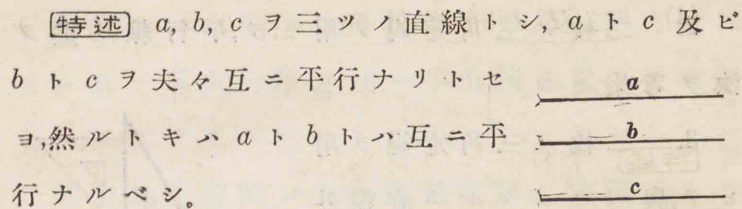 特述 a, b, c ヲ三ツノ直線トシ, a ト c 及ビ
b ト c ヲ夫々互ニ平行ナリトセ
ヨ,然ルトキハ a ト b トハ互ニ平
行ナルベシ。
a
b
c